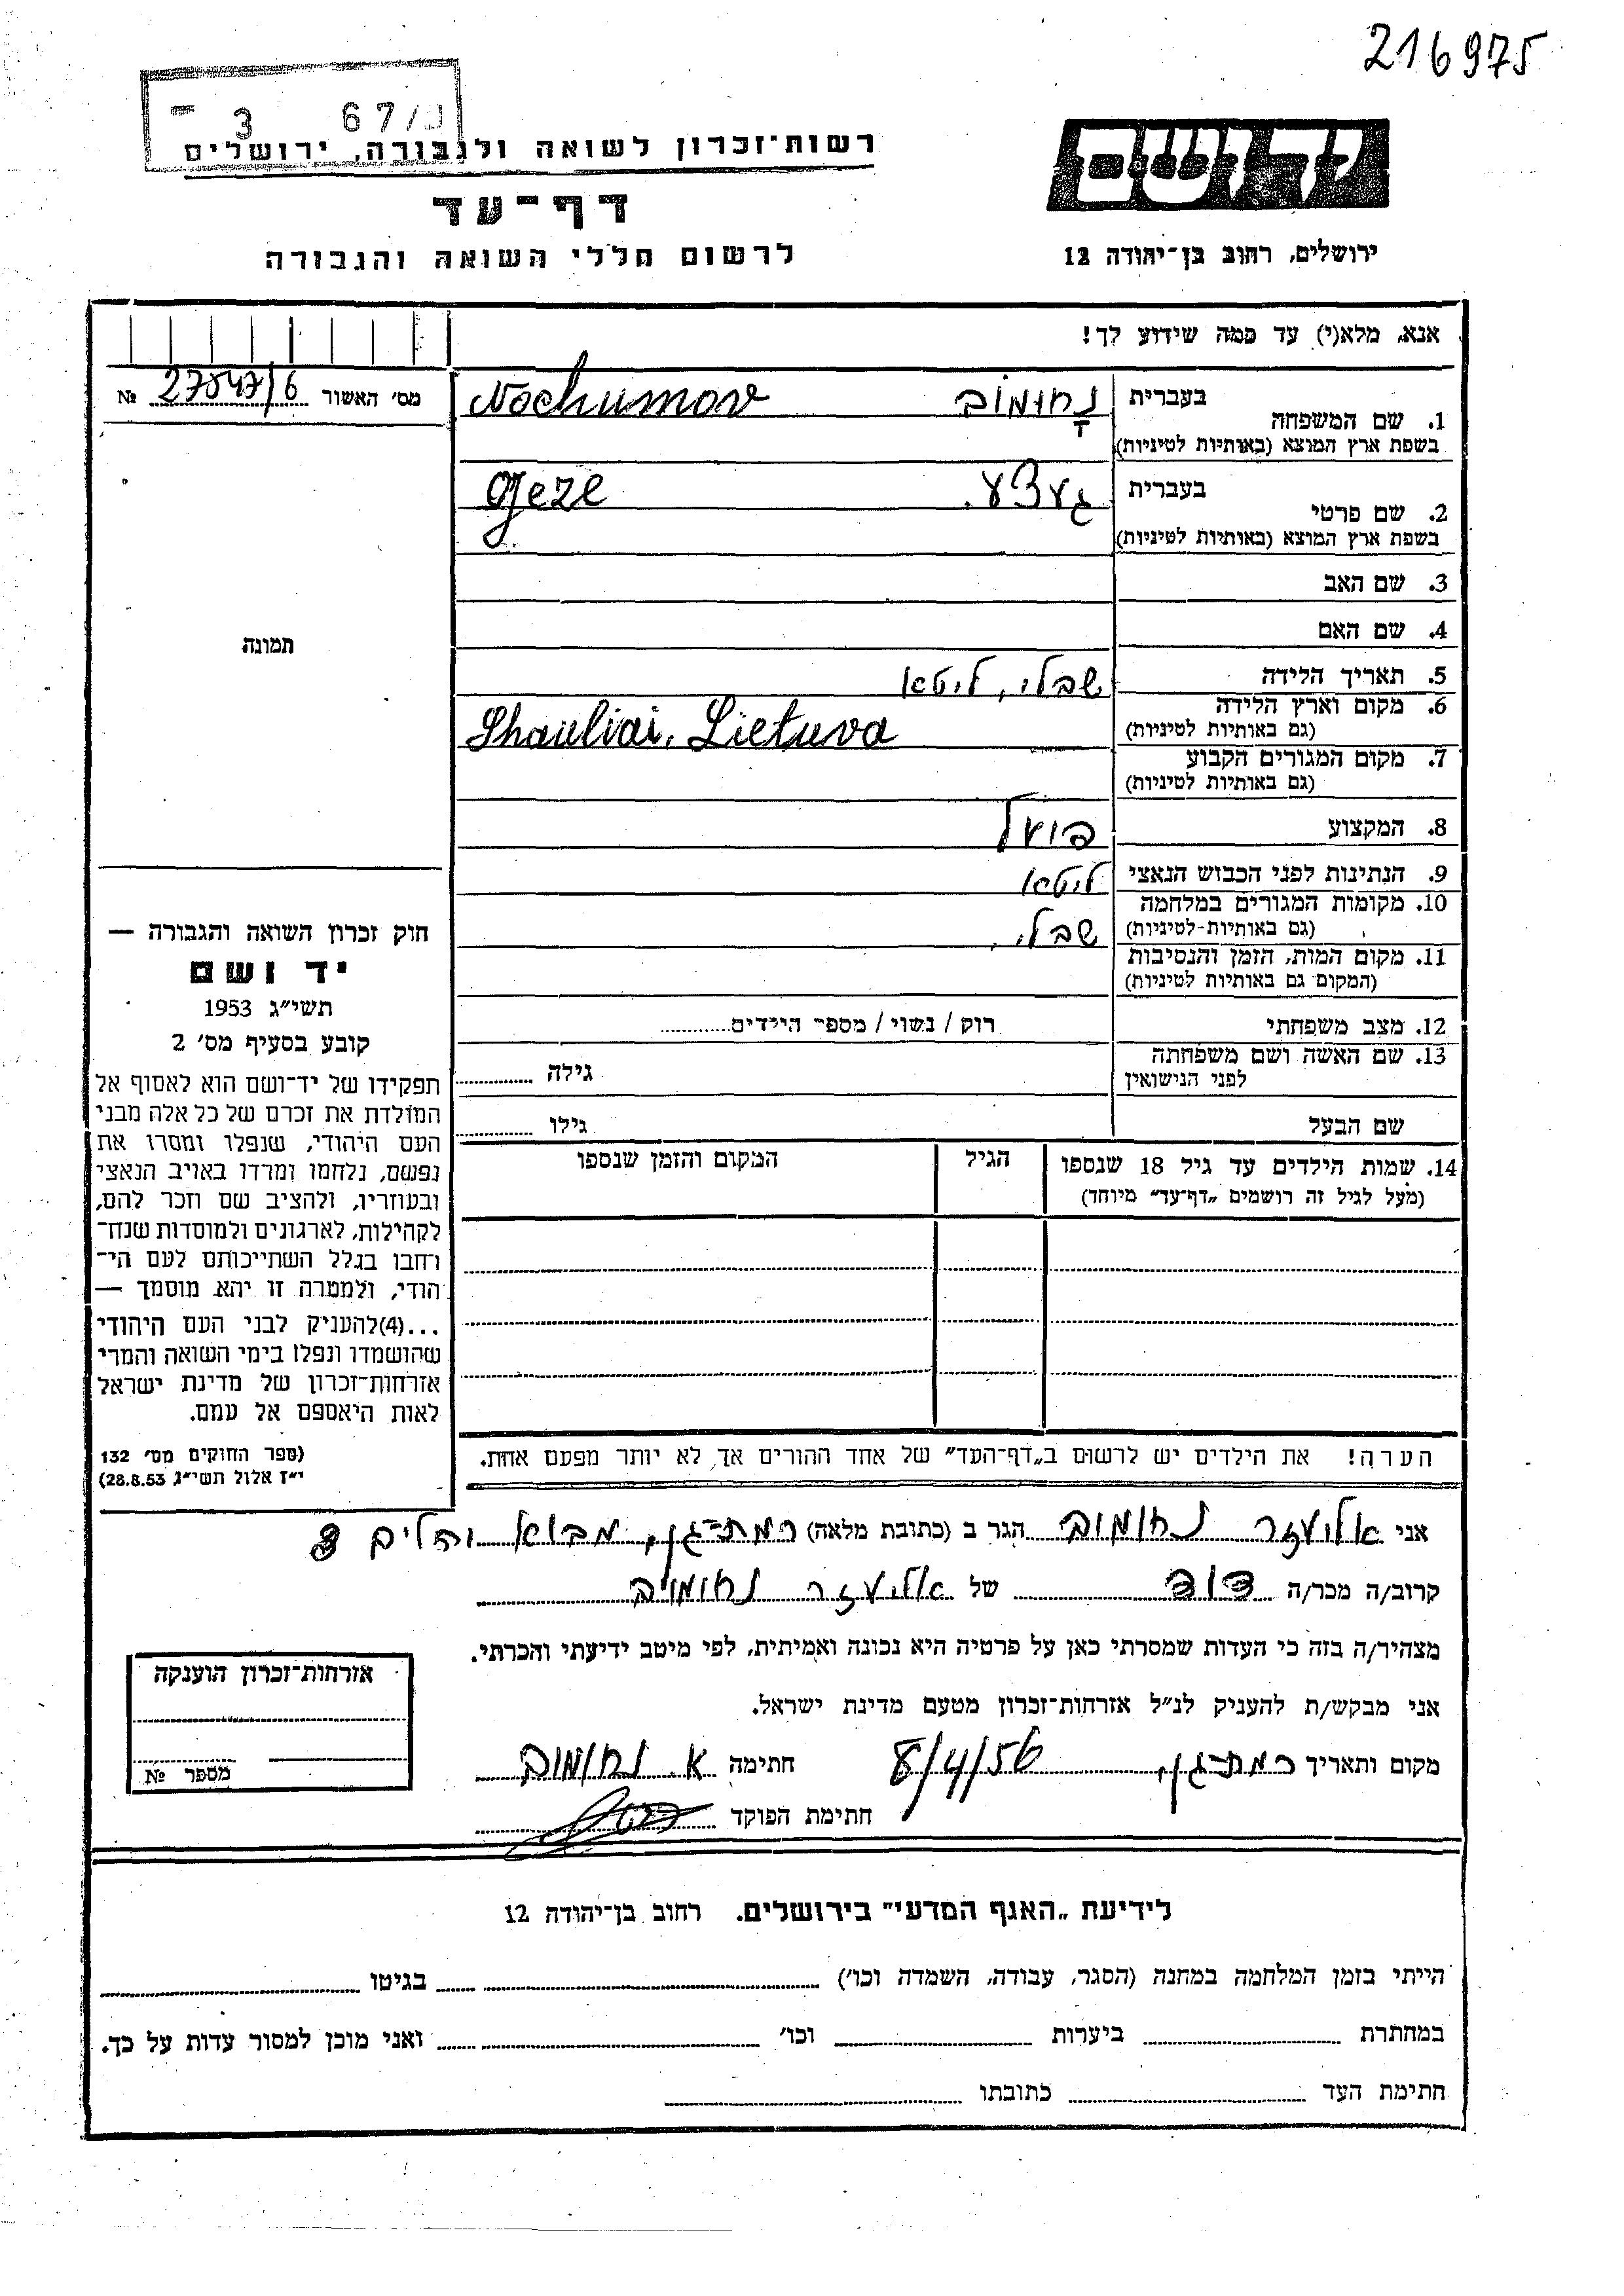 216975
3 67/נ
רשות־זכרון לשואה ולגבורה, ירושלים
דף־עד
לרשום חללי השואה והגבורה
יד ושם
ירושלים, רחוב בן־יהודה 12
אנא, מלא(י) עד כמה שידוע לך!
מס' האשור 27847/6 №
תמונה
1. שם המשפחה בעברית נחומוב Nochumov
בשפת ארץ המוצא (באותיות לטיניות)
2. שם פרטי בעברית געצע Geze
בשפת ארץ המוצא (באותיות לטיניות)
3. שם האב
4. שם האם
5. תאריך הלידה שבלי, ליטא
6. מקום וארץ הלידה Shauliai, Lietuva
(גם באותיות לטיניות)
7. מקום המגורים הקבוע
(גם באותיות לטיניות)
8. המקצוע פועל
9. הנתינות לפני הכבוש הנאצי ליטא
10. מקומות המגורים במלחמה שבלי,
(גם באותיות־לטיניות)
11. מקום המות, הזמן והנסיבות
(המקום גם באותיות לטיניות)
12. מצב משפחתי רוק / נשוי / מספר הילדים
13. שם האשה ושם משפחתה גילה
לפני הנישואין
שם הבעל גילו
14. שמות הילדים עד גיל 18 שנספו הגיל המקום והזמן שנספו
(מעל לגיל זה רושמים "דף־עד" מיוחד)
הערה! את הילדים יש לרשום ב"דף־העד" של אחד ההורים אך לא יותר מפעם אחת.
חוק זכרון השואה והגבורה —
יד ושם
תשי"ג 1953
קובע בסעיף מס' 2
תפקידו של יד־ושם הוא לאסוף אל
המולדת את זכרם של כל אלה מבני
העם היהודי, שנפלו ומסרו את
נפשם, נלחמו ומרדו באויב הנאצי
ובעוזריו, ולהציב שם וזכר להם,
לקהילות, לארגונים ולמוסדות שנח־
רחבו בגלל השתייכותם לעם הי־
הודי, ולמטרה זו יהא מוסמך —
...(4)להעניק לבני העם היהודי
שהושמדו ונפלו בימי השואה והמרי
אזרחות־זכרון של מדינת ישראל
לאות היאספם אל עמם.
(ספר החוקים מס' 132
י"ז אלול תשי"ג 28.8.53)
אני אליעזר נחומוב הגר ב (כתובת מלאה) רמת־גן, מבוא
קרוב/ה מכר/ה דוד של אליעזר נחומוב
מצהיר/ה בזה כי העדות שמסרתי כאן על פרטיה היא נכונה ואמיתית, לפי מיטב ידיעתי והכרתי.
אני מבקש/ת להעניק לנ"ל אזרחות־זכרון מטעם מדינת ישראל.
מקום ותאריך רמת־גן, 8/4/56 חתימה א. נחומוב
חתימת הפוקד
אזרחות־זכרון הוענקה
מספר №
לידיעת "האגף המדעי" בירושלים. רחוב בן־יהודה 12
הייתי בזמן המלחמה במחנה (הסגר, עבודה, השמדה וכו') בגיטו
במחתרת ביערות וכו' ואני מוכן למסור עדות על כך.
חתימת העד כתובתו